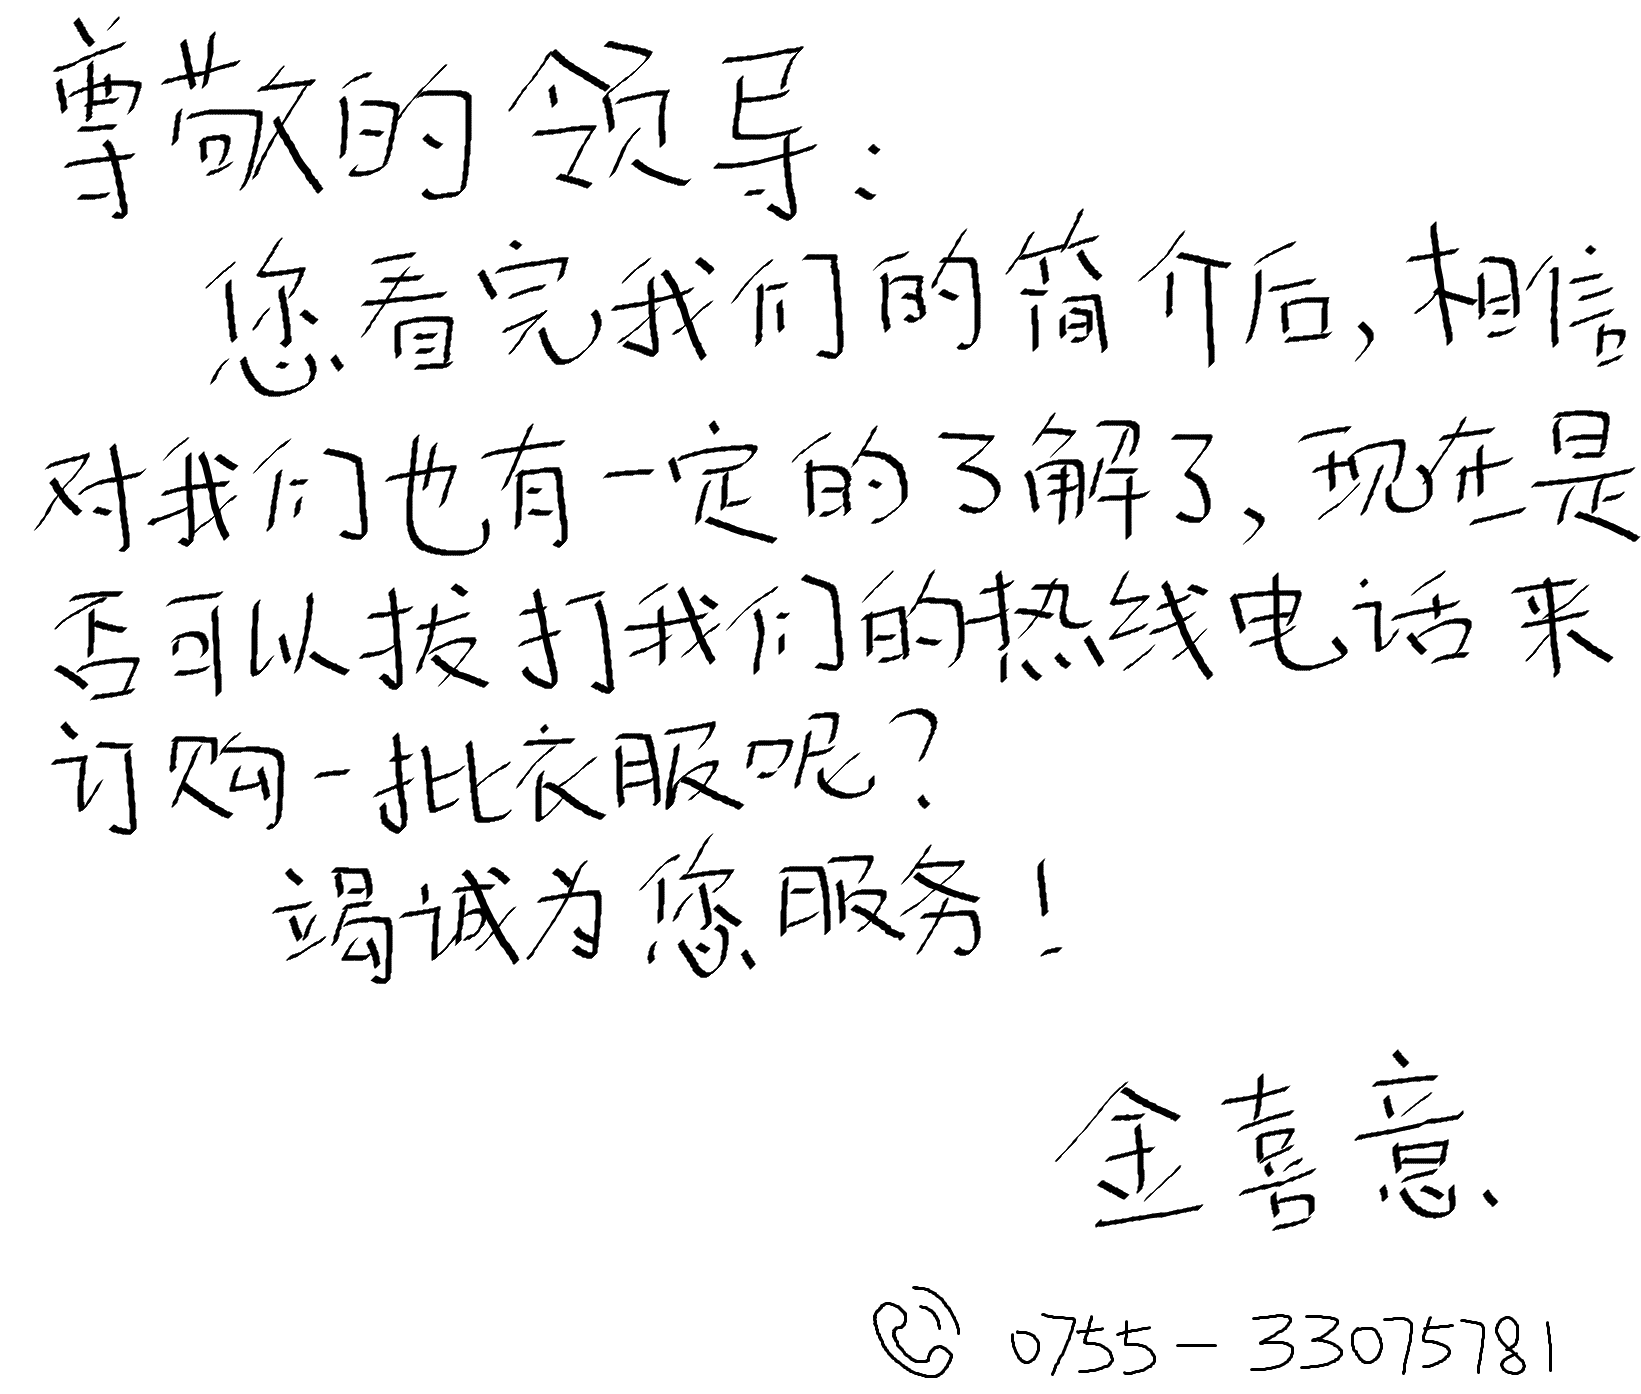 尊敬的领导：
您看完我们的简介后，相信
对我们也有一定的了解了，现在是
否可以拔打我们的热线电话来
订购一批衣服呢？
竭诚为您服务！
金喜意
0755-33075781